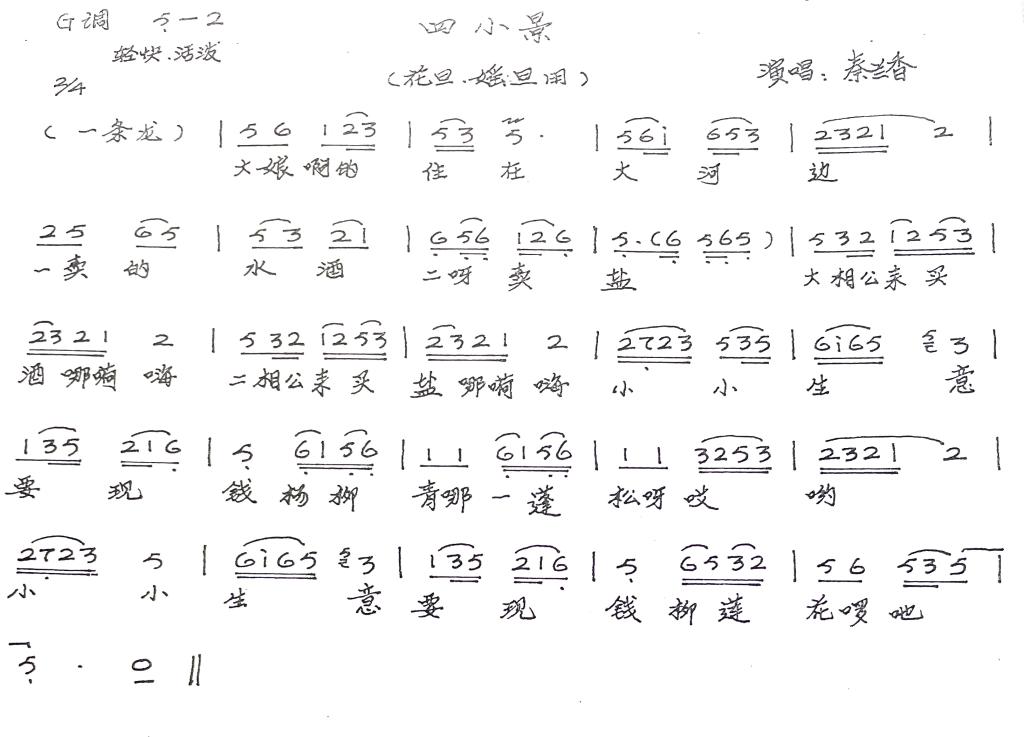 G调 5—2 四小景
轻快.活泼
3/4 (花旦.媱旦用) 演唱：秦兰香
(一条龙) | 5 6 1 2 3 | 5 3 5 · | 5 6 i 6 5 3 | 2 3 2 1 2 |
大娘啊的 住在 大河 边
2 5 6 5 | 5 3 2 1 | 6 5 6 1 2 6 | 5 · (6 5 6 5) | 5 3 2 1 2 5 3 |
一卖的 水酒 二呀卖 盐 大相公来买
2 3 2 1 2 | 5 3 2 1 2 5 3 | 2 3 2 1 2 | 2 7 2 3 5 3 5 | 6 i 6 5 3 |
酒哪嗬嗨 二相公来买 盐哪嗬嗨 小小 生意
1 3 5 2 1 6 | 5 6 1 5 6 | 1 1 6 1 5 6 | 1 1 3 2 5 3 | 2 3 2 1 2 |
要现 钱杨柳 青哪一蓬 松呀哎 哟
2 7 2 3 5 | 6 i 6 5 3 | 1 3 5 2 1 6 | 5 6 5 3 2 | 5 6 5 3 5 |
小小 生意 要现 钱柳莲 花啰吔
5 · 0 ‖